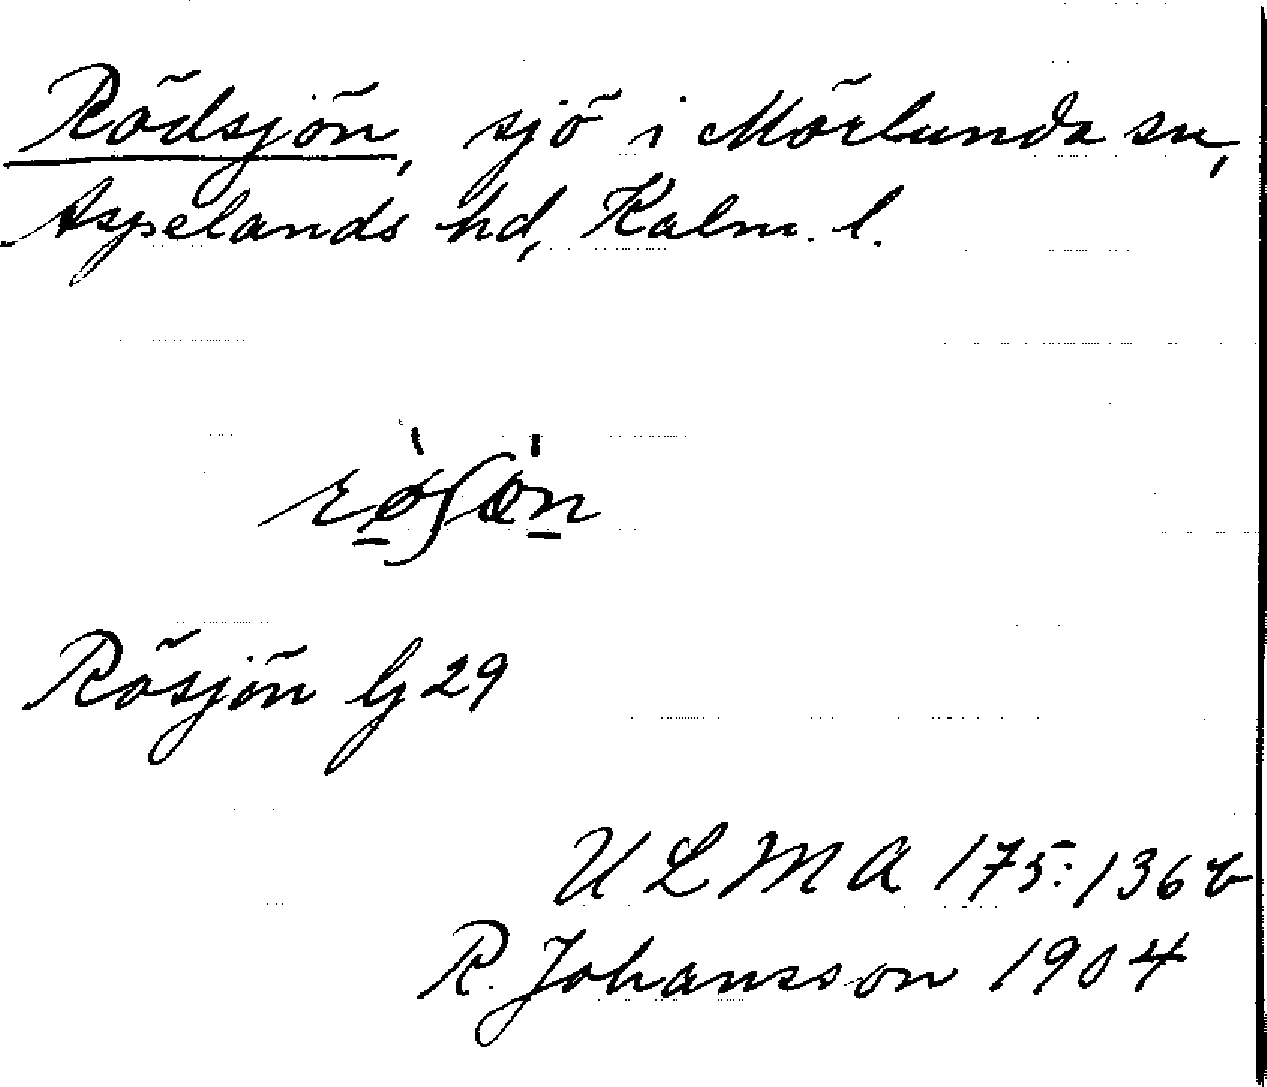 Rödsjön, sjö i Mörlunda sn,
Aspelands hd, Kalm. l.
Rösjön G 29
ULMA 175:136 b
R. Johansson 1904